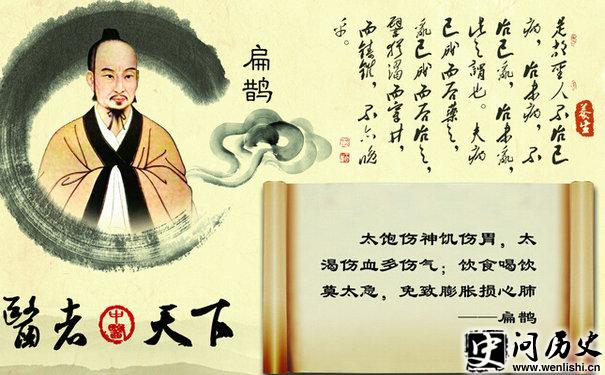 是故聖人不治已
病，治未病，不
治已亂，治未亂，
此之謂也。夫病
已成而后藥之，
亂已成而后治之，
譬猶渴而穿井，
而鑄錐，不亦晚
乎。
养生
扁鹊
太饱伤神饥伤胃，太
渴伤血多伤气；饮食喝饮
莫太急，免致膨胀损心肺
——扁鹊
醫者中醫天下
史问历史
www.wenlishi.cn